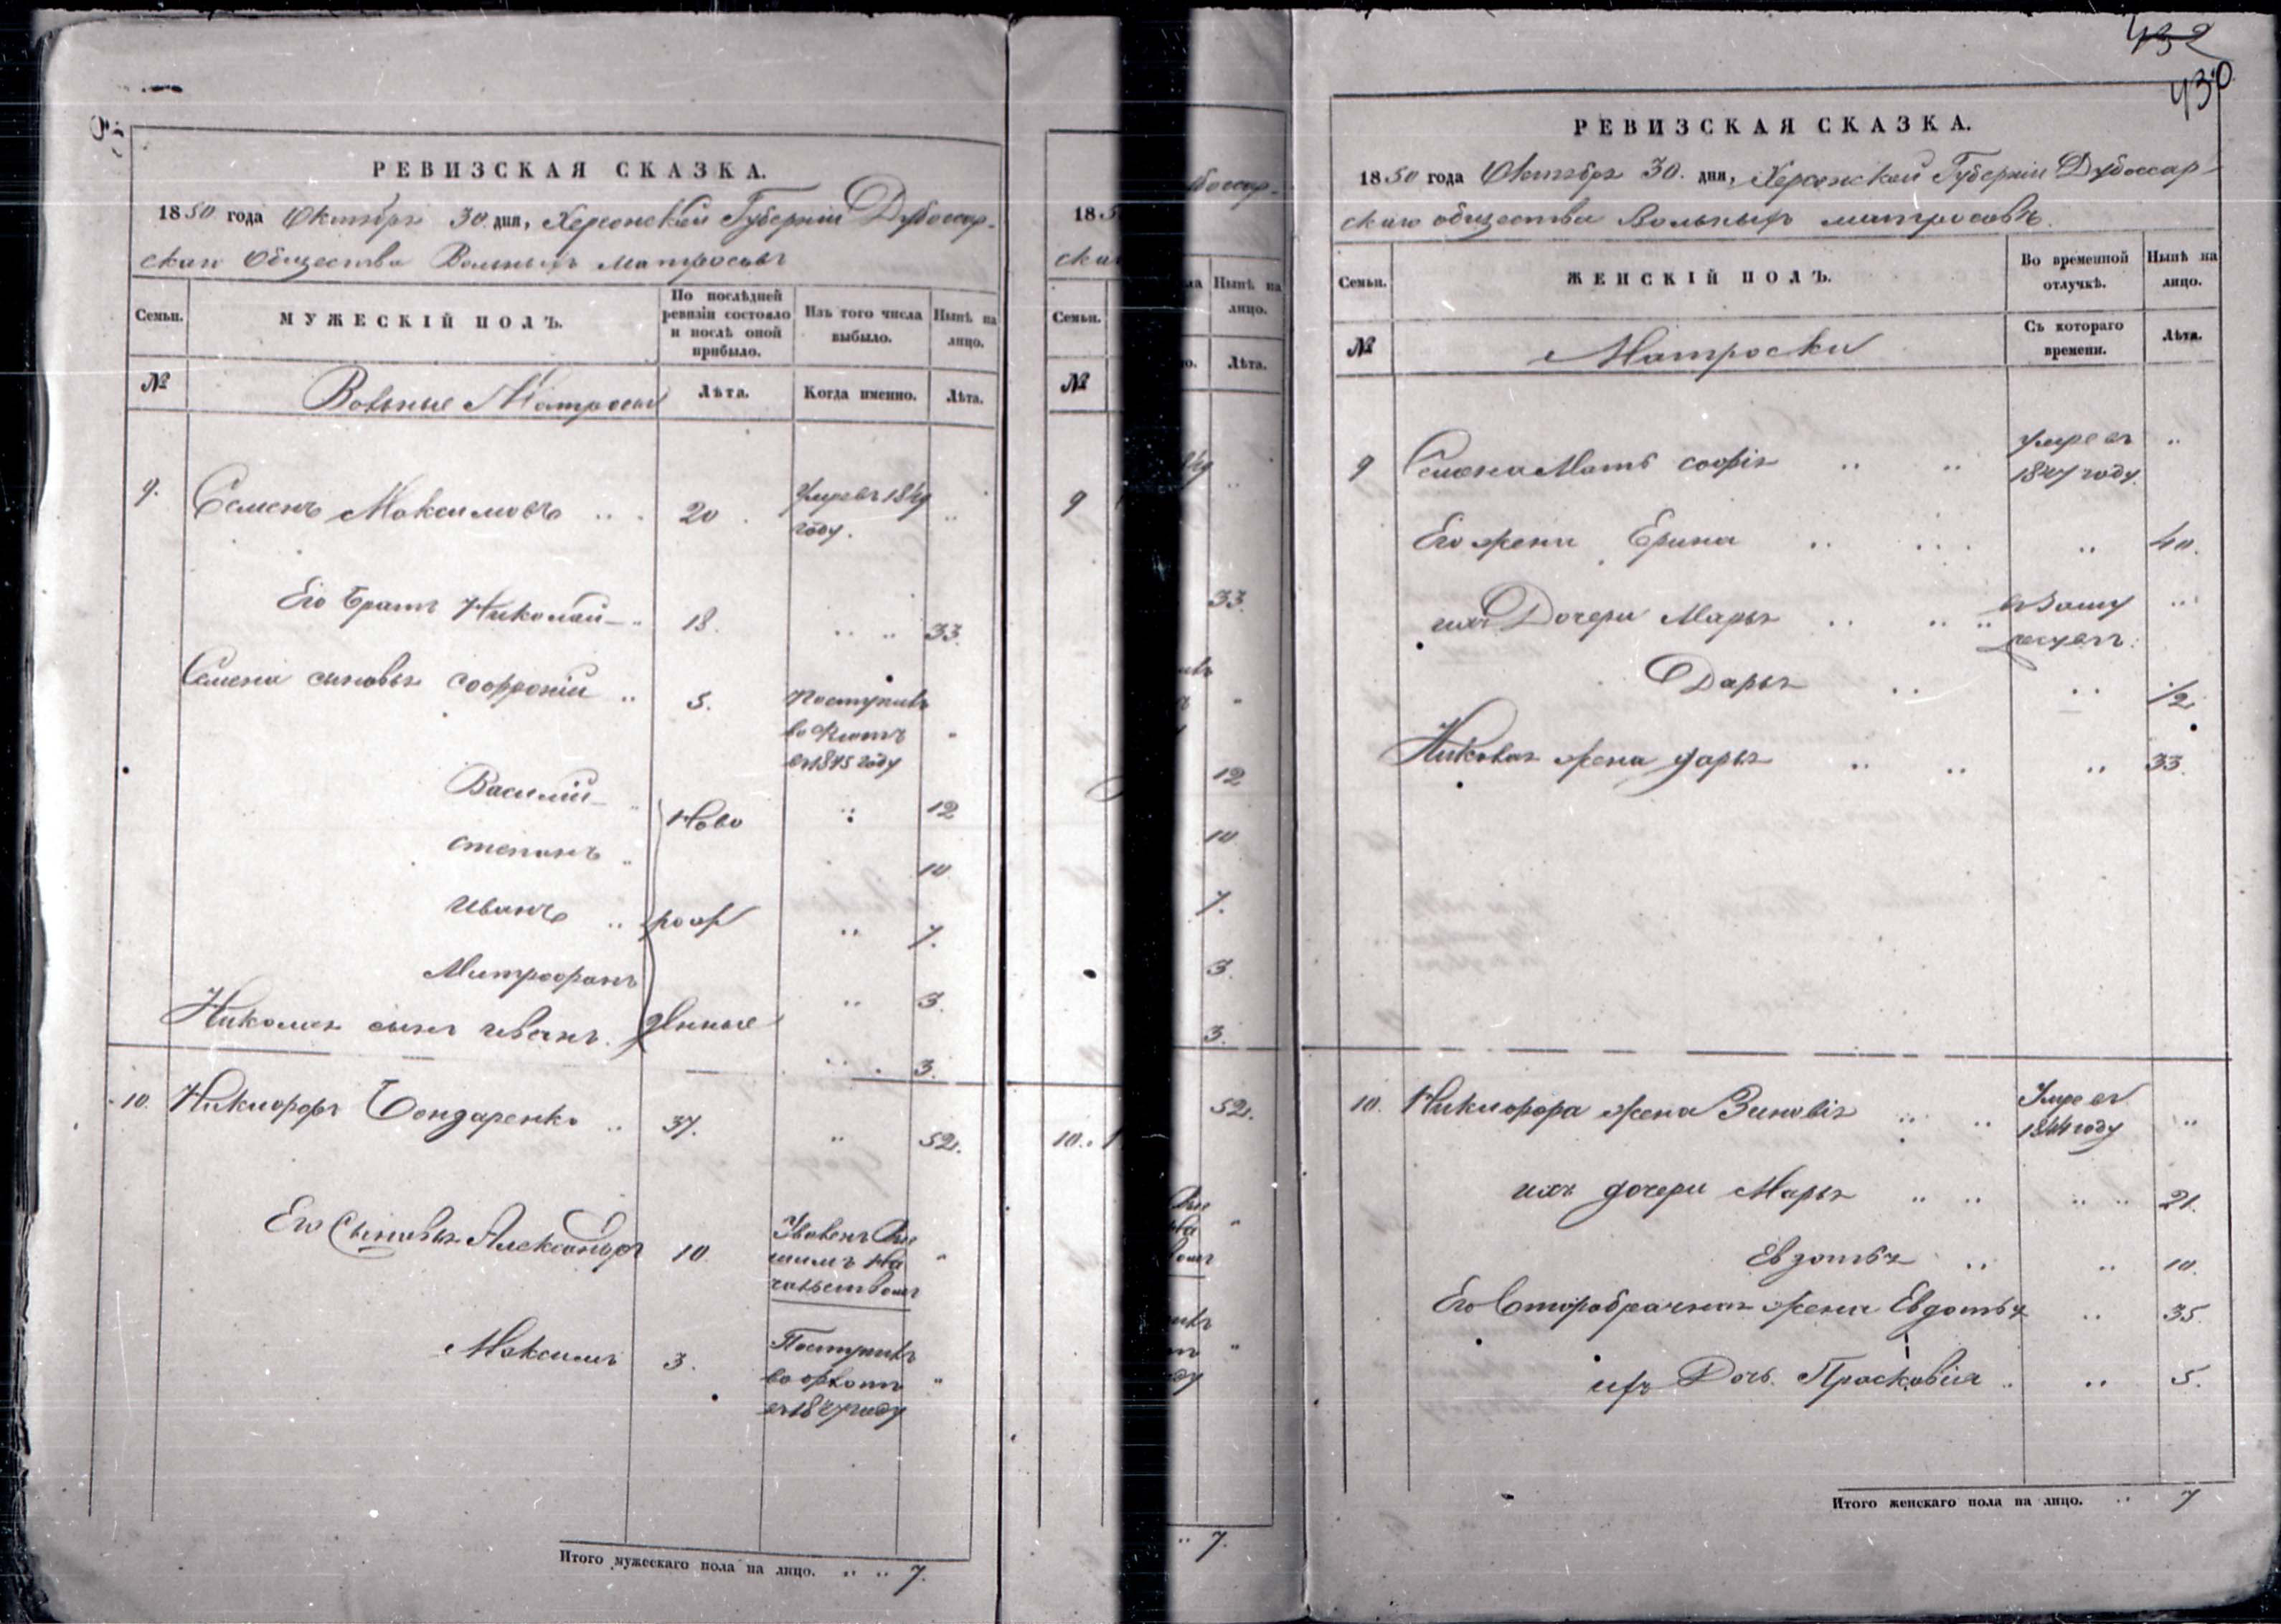 РЕВИЗСКАЯ СКАЗКА.
1850 года Октября 30 дня, Херсонской Губерніи Дубоссар-
скаго Общества Вольныхъ матросовъ
Семьи.
МУЖЕСКІЙ ПОЛЪ.
По послѣдней ревизіи состояло и послѣ оной прибыло.
Изъ того числа выбыло.
Нынѣ на лицо.
№
Вольные Матросы
Лѣта.
Когда именно.
Лѣта.
9. Семенъ Максимовъ .. . 20 . Умре въ 1849 ..
году.
Его братъ Николай .. 18. .. .. 33.
Семена сыновья Софроній .. 5. Поступивъ
во Флотъ "
въ 1845 году
Василій .. Ново .. 12
Степанъ .. 10
Иванъ .. рож .. 7.
Митрофанъ .. 3
Николая сынъ Иванъ. денные .. . 3.
10. Никифоръ Бондаренко .. 37. .. 52.
Его Сыновья Александръ 10 Уволенъ Выс
шимъ На "
чальствомъ
Максимъ 3. Поступивъ
во флотъ "
въ 1847 году
Итого мужескаго пола на лицо. .. .. 7.
боссар-
185
скаг
Семьи.
Нынѣ на лицо.
№
Лѣта.
9
33.
12
10
7.
3.
3.
10. 52.
.. 7.
432
430
РЕВИЗСКАЯ СКАЗКА.
1850 года Октября 30. дня, Херсонской Губерніи Дубоссар-
скаго общества Вольныхъ матросовъ.
Семьи.
ЖЕНСКІЙ ПОЛЪ.
Во временной отлучкѣ.
Нынѣ на лицо.
№
Матроски
Съ котораго времени.
Лѣта.
9 Семена Мать Софія .. .. Умре въ ..
1847 году.
Его жена Ерина .. ... .. 40.
ихъ Дочери Марья .. .. .. взаму ..
жеств:
Дарья .. .. 1/2
Николая жена Дарья .. .. .. 33.
10. Никифора жена Зиновія .. .. Умре въ
1844 году ..
ихъ дочери Марья .. .. .. .. 21.
Евдотья .. .. 10.
Его Второбрачная жена Евдотья .. 35.
ихъ Дочь Прасковія . .. 5.
Итого женскаго пола на лицо. .. 7